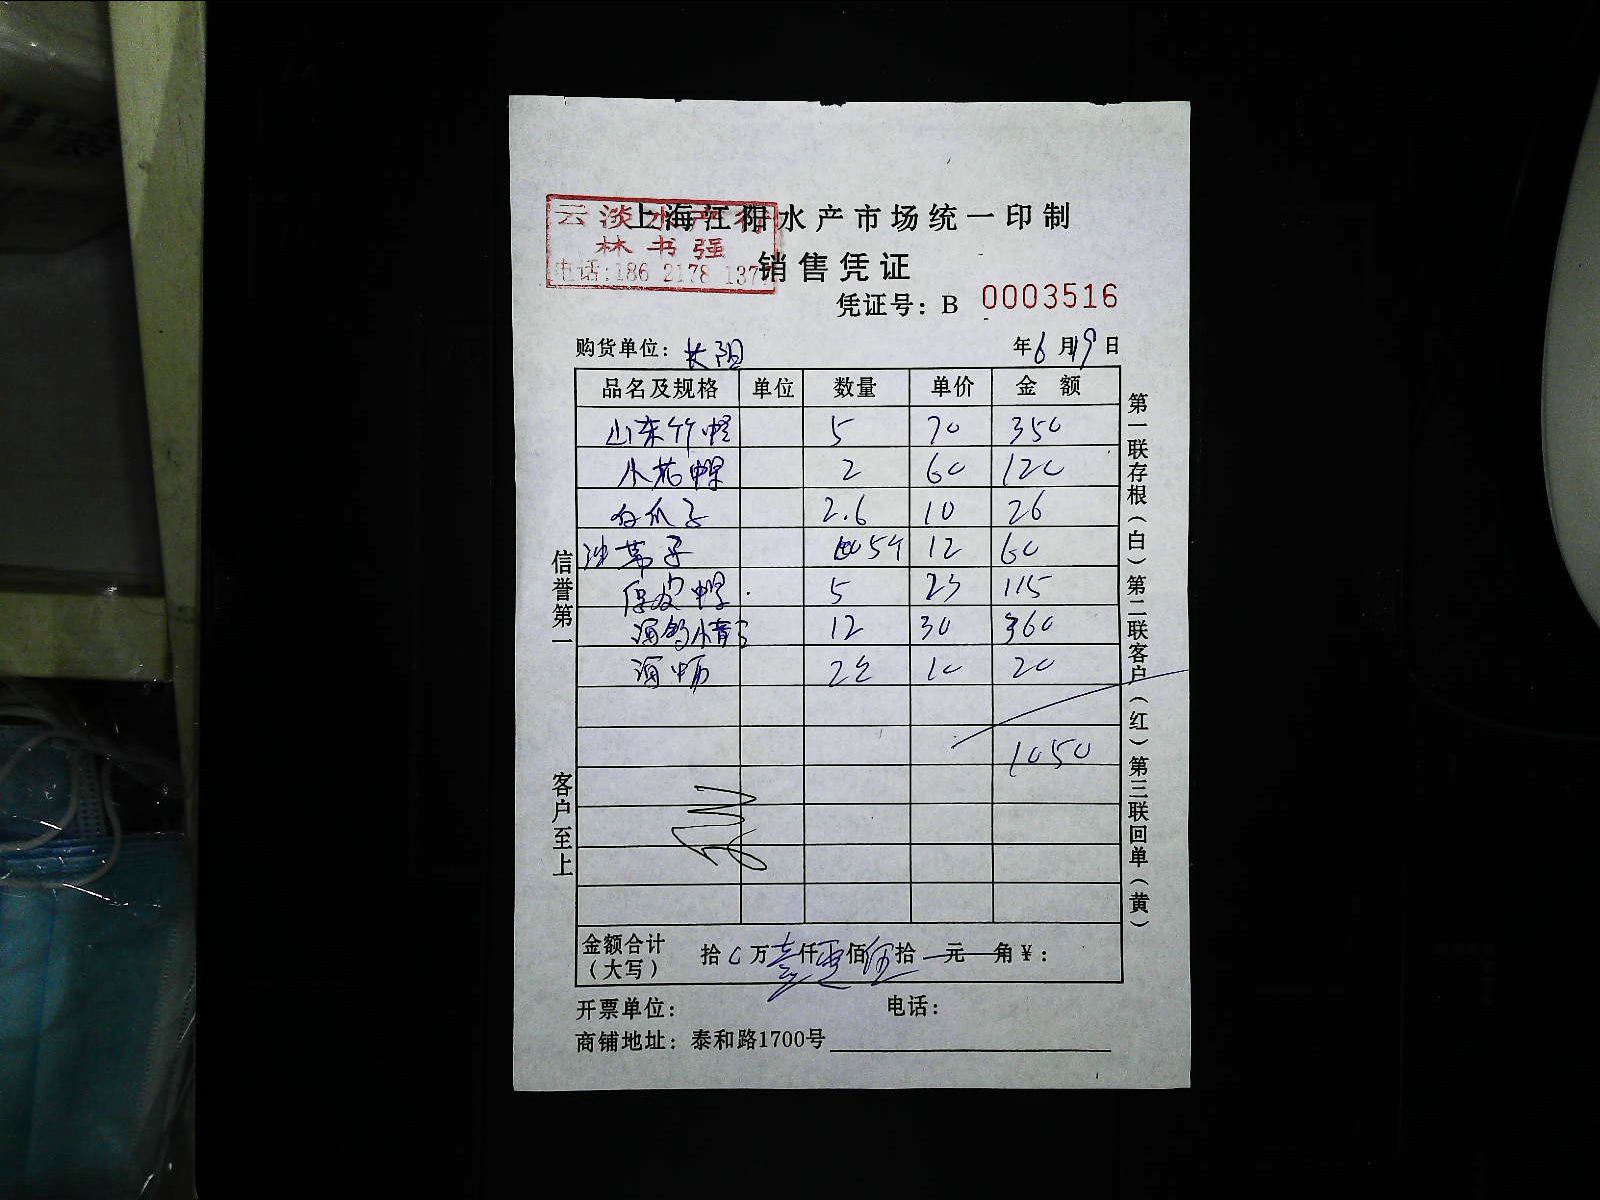 上海江阳水产市场统一印制
云淡水产行
林书强
销售凭证
电话:186 2178 137
凭证号: B 0003516
购货单位: 长阳 年6月19日
品名及规格 单位 数量 单价 金 额
山东竹蛏 5 70 350
小花甲 2 60 120
白爪子 2.6 10 26
沙蒂子 5个 12 60
厚皮 5 23 115
海的小青 12 30 360
海蛎 2 10 20
1050
金额合计 拾 0 万 壹 仟 零 佰 伍 拾 元 角 ¥:
(大写)
开票单位: 电话:
商铺地址: 泰和路1700号
信誉第一 客户至上
第一联存根(白)第二联客户(红)第三联回单(黄)